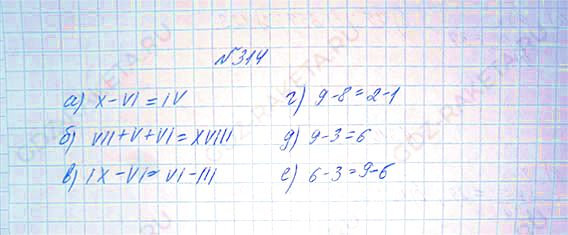 №314
а) X - VI = IV
б) VII + V + VI = XVIII
в) IX - VI = VI - III
г) 9 - 8 = 2 - 1
д) 9 - 3 = 6
е) 6 - 3 = 9 - 6
GDZ-RAKETA.RU